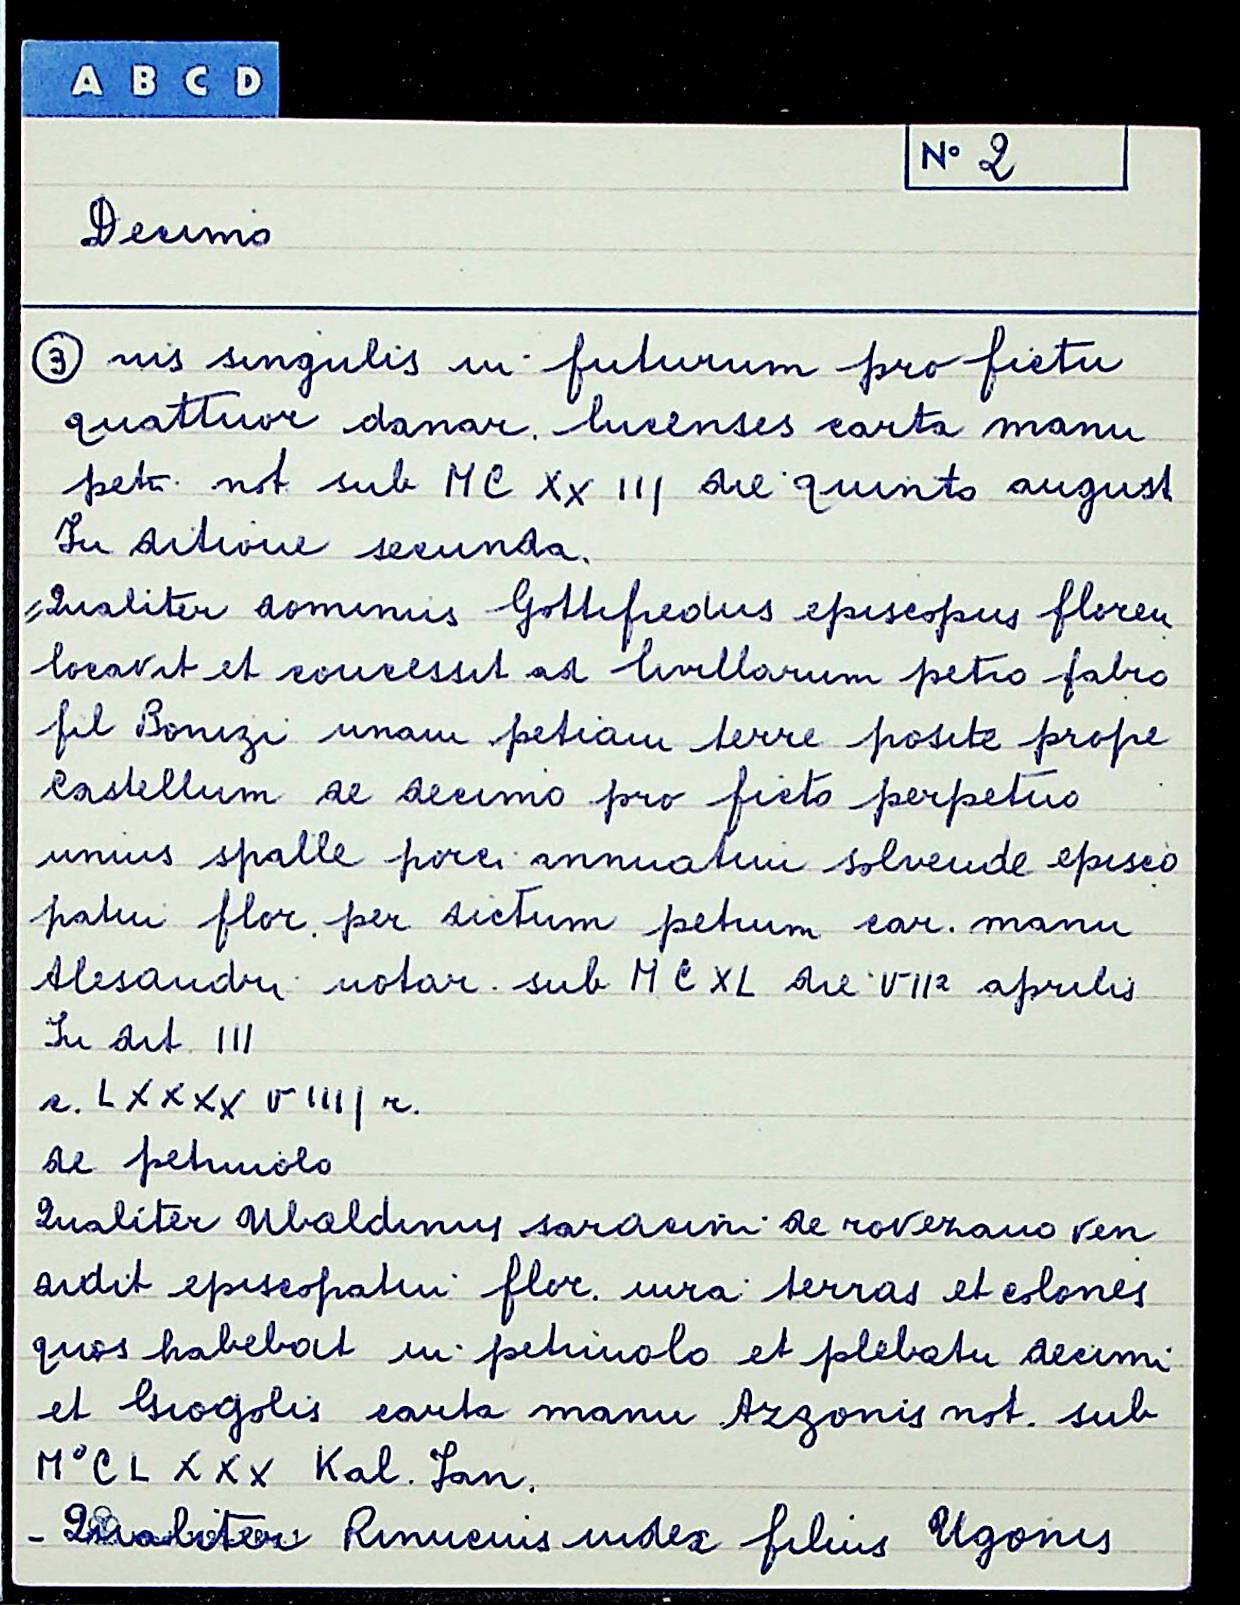 A B C D
N° 2
Decimo
③ nis singulis in futurum pro fictu
quattuor danar. lucenses carta manu
petr. not sub MC XX III die quinto august
In ditione secunda.
Qualiter dominus Gottifredus episcopus floren
locavit et concessit ad livellarum petro fabro
fil Bonizi unam petiam terre posite prope
Castellum de decimo pro ficto perpetuo
unius spalle porci annuatim solvende episco
patui flor. per dictum petrum car. manu
Alesandri notar. sub M C XL die VII2 aprilis
In dit. III
c. L X X X X V IIII r.
de petriuolo
Qualiter Ubaldinus saracini de rovezano ven
didit episcopatui flor. iura terras et colones
quos habebat in petriuolo et plebatu decimi
et Giogolis carta manu Azzonis not. sub
M°C L X X X Kal. Jan.
- Qualiter Rinucius iudex filius Ugonis